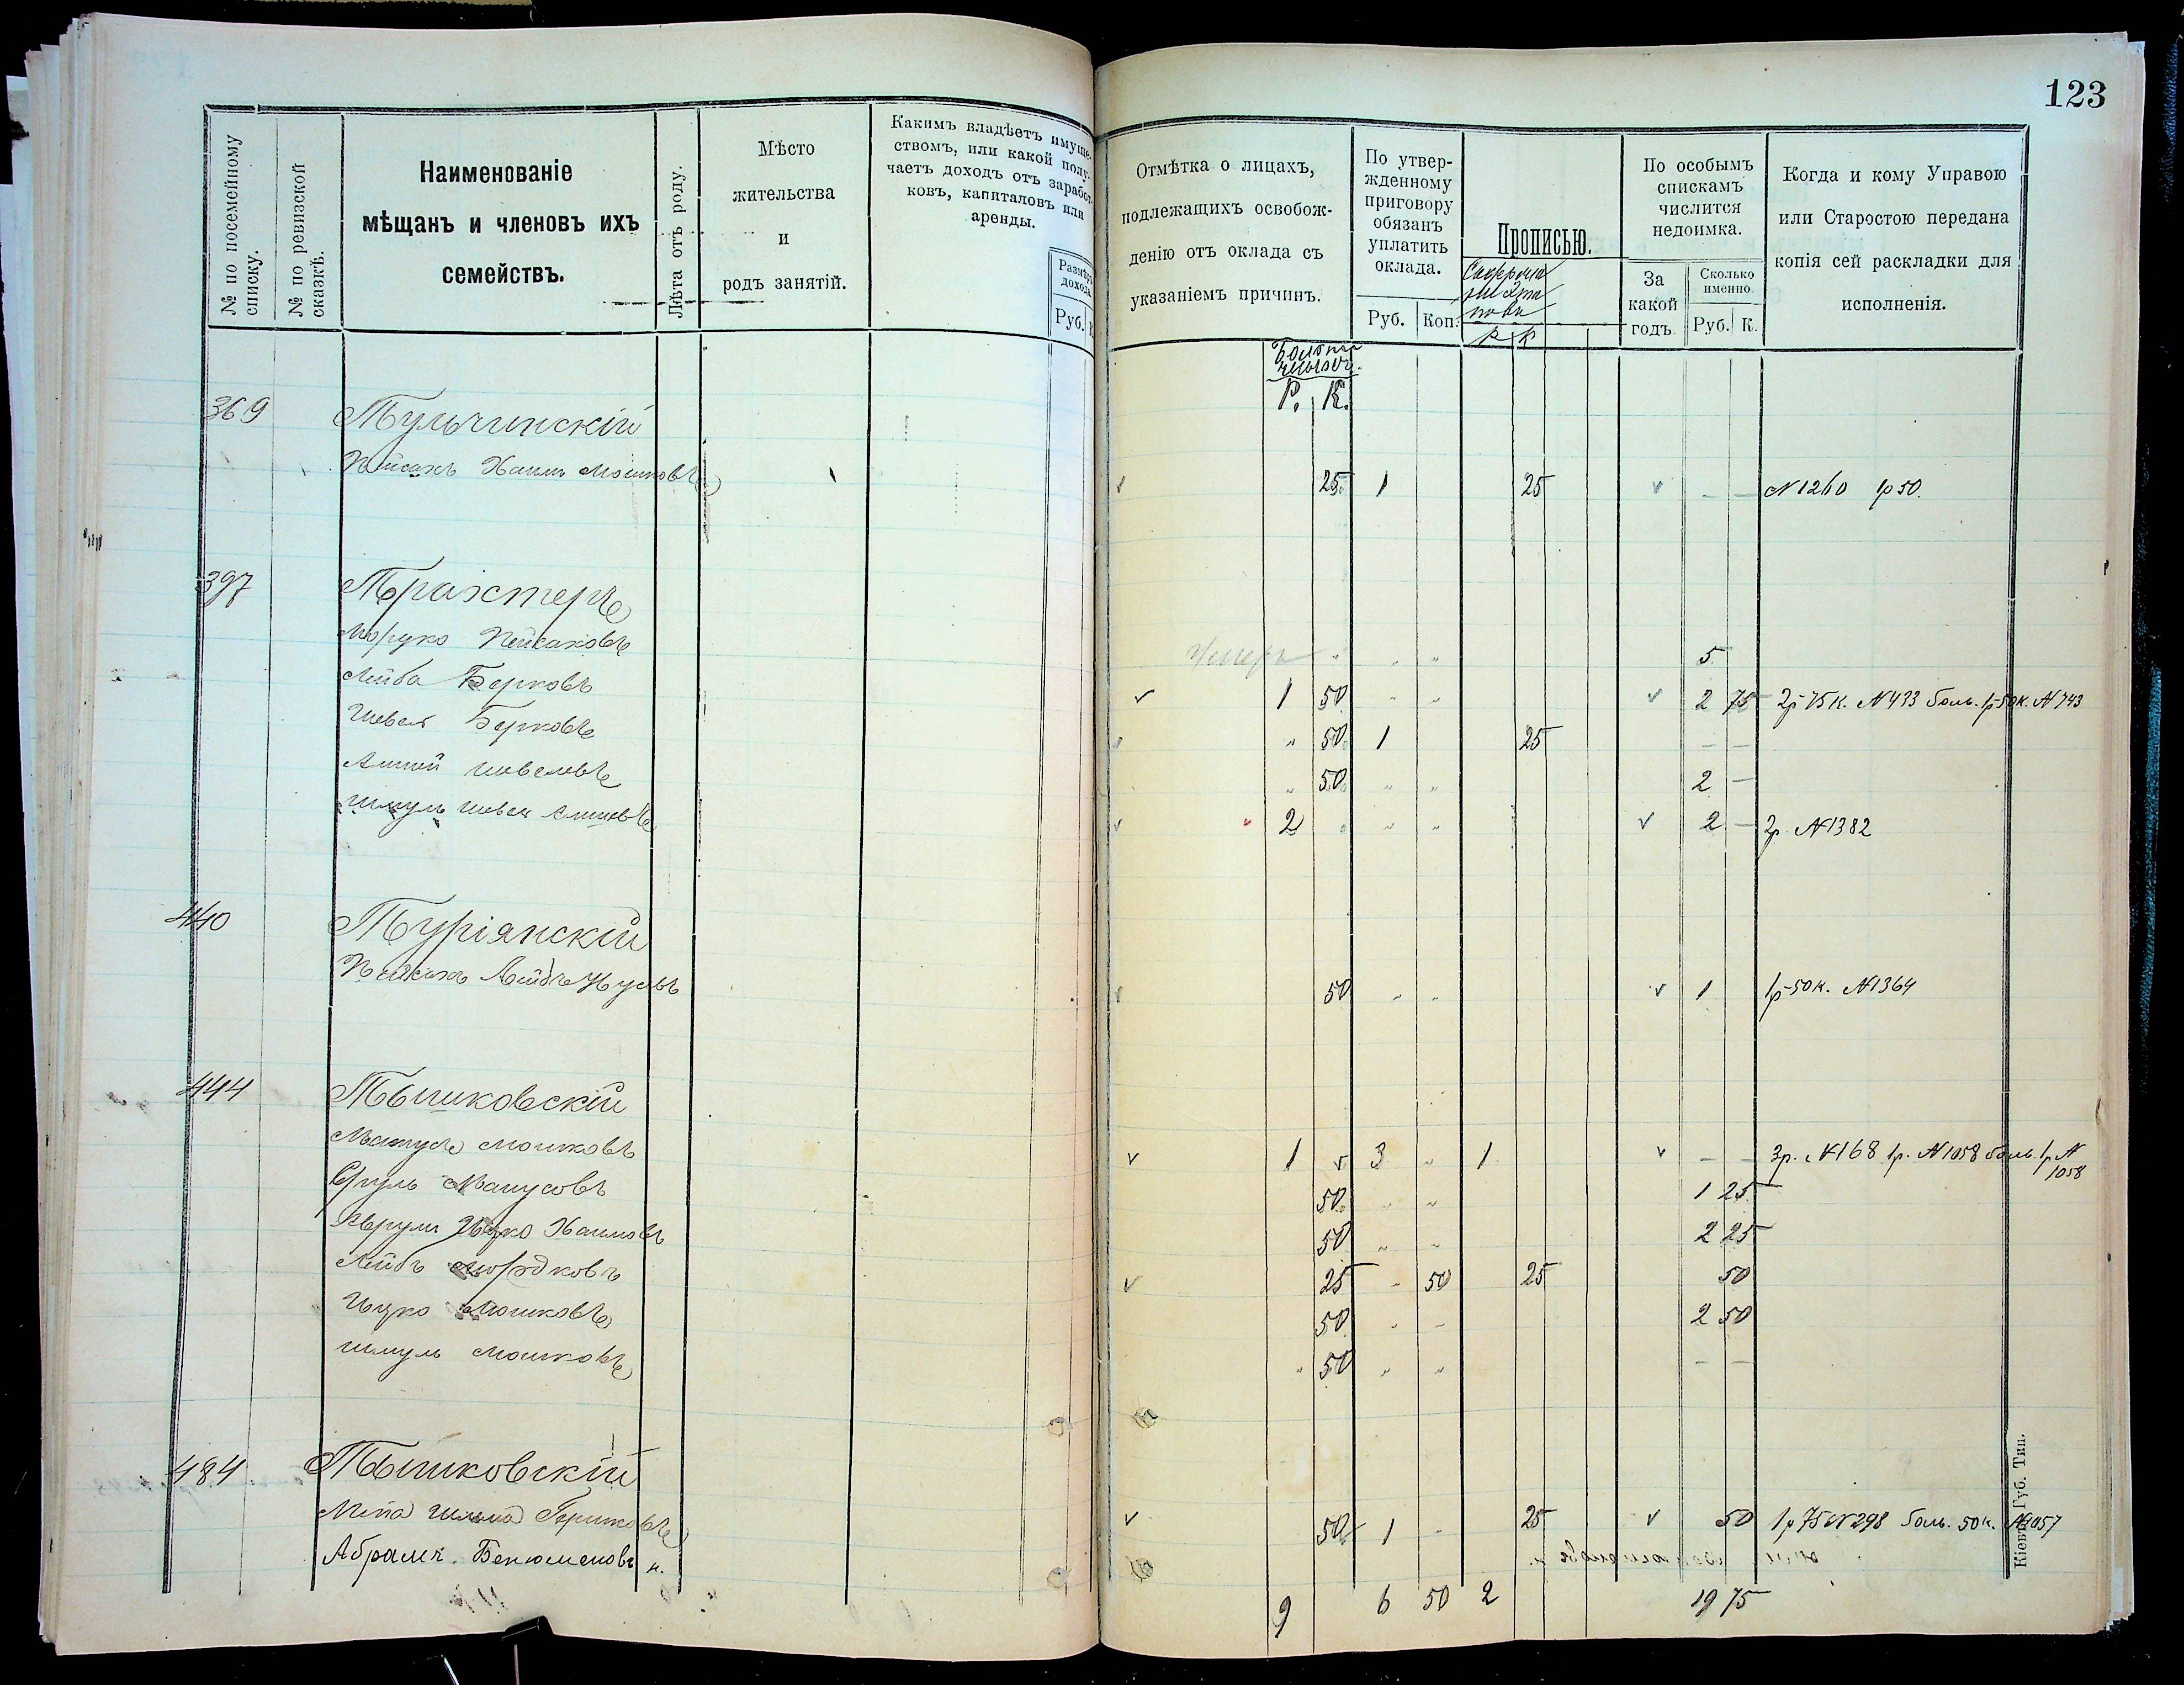 123
№ по посемейному списку.
№ по ревизской сказкѣ.
Наименованіе
мѣщанъ и членовъ ихъ
семействъ.
Лѣта отъ роду.
Мѣсто
жительства
и
родъ занятій.
Какимъ владѣетъ имуще-
ствомъ, или какой полу-
чаетъ доходъ отъ заработ-
ковъ, капиталовъ или
аренды.
Размѣръ
дохода
Руб. К.
Отмѣтка о лицахъ,
подлежащихъ освобож-
денію отъ оклада съ
указаніемъ причинъ.
По утвер-
жденному
приговору
обязанъ
уплатить
оклада.
Руб. Коп.
Прописью.
Р К
По особымъ
спискамъ
числится
недоимка.
За
какой
годъ.
Сколько
именно.
Руб. К.
Когда и кому Управою
или Старостою передана
копія сей раскладки для
исполненія.
Р. К.
369 Тульчинскій
Пейсахъ Хаимъ Мошковъ 25 1 25 v — — N 1260 1р 50.
397 Трахтеръ
Мордко Пейсаховъ Умеръ " " " 5
Лейба Берковъ v 1 50 " " v 2 75 2р 75 к. N 433 боль. 1р-50к. N 743
Шевель Берковъ v " 50 1 25 — —
Шевелевъ " 50 " " 2 —
Шмуль Шевел v 2 " " " v 2 — 2р. N 1382
440 Туріянскій
Пейсахъ Лейбъ v 50 " " v 1 1р-50к. N 1364
444 Тышковскій
Матусъ Мошковъ v 1 v 3 " 1 v — — 3р. N 168 1р. N 1058 боль. 1р N
1058
Сруль Матусовъ 50 " " 1 25
Ицко Хаимовъ 50 " " 2 25
Лейбъ Мордковъ v 25 " 50 25 50
Ицко Мошковъ 50 " " 2 50
Шмуль Мошковъ " 50 " " — —
484 Тышковскій
Шлема Гершковъ v 50 1 " 25 v 50 1р 75 N 298 боль. 50к. N 1057
Абрамъ. Бенюменовъ н.
9 6 50 2 19 75
Кіевъ, Губ. Тип.